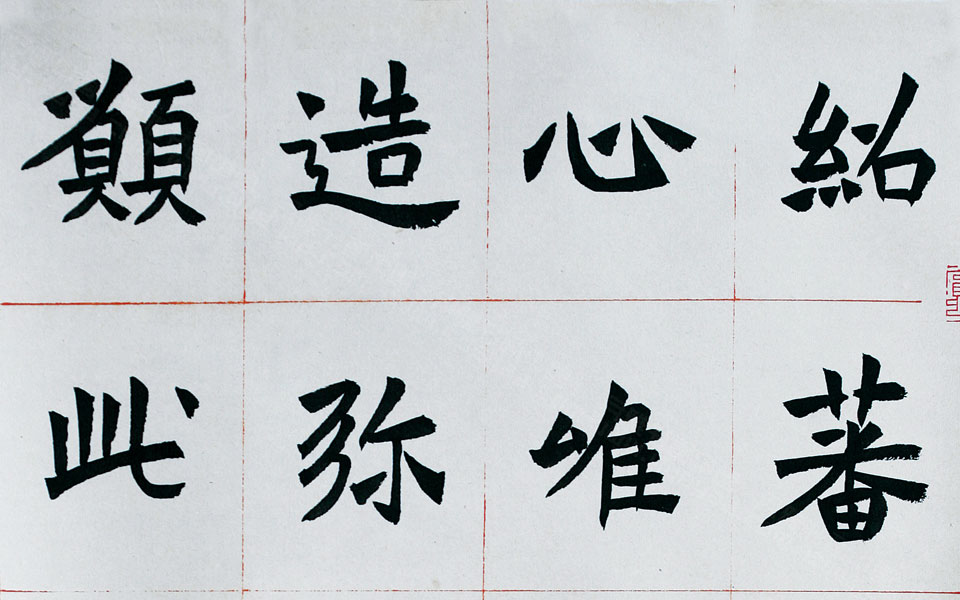 紹蕃
心唯
造弥
願此